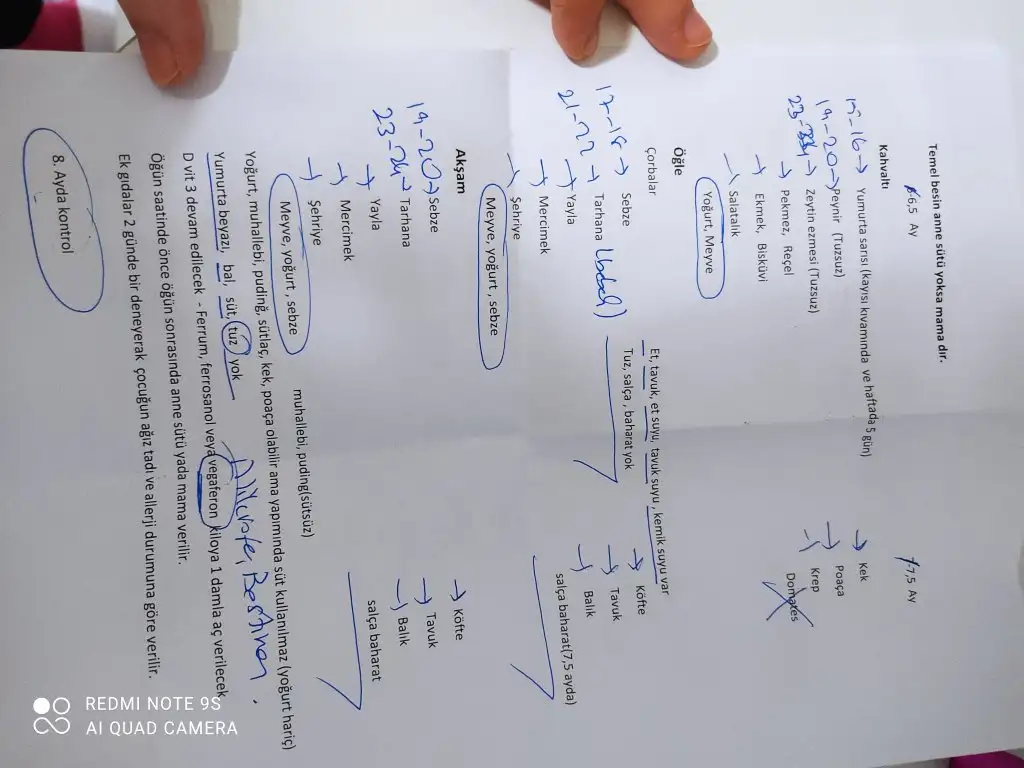 Temel besin anne sütü yoksa mama dır.
6,5 Ay
7,5 Ay
Kahvaltı
15-16 → Yumurta sarısı (kayısı kıvamında ve haftada 5 gün)
19-20 → Peynir (Tuzsuz)
23-24 → Zeytin ezmesi (Tuzsuz)
→ Pekmez, Reçel
→ Ekmek, Bisküvi
→ Salatalık
Yoğurt, Meyve
→ Kek
→ Poaça
→ Krep
Domates
Öğle
Çorbalar
Et, tavuk, et suyu, tavuk suyu, kemik suyu var
17-18 → Sebze
Tuz, salça, baharat yok
21-22 → Tarhana
→ Yayla
→ Mercimek
→ Şehriye
Meyve, yoğurt, sebze
→ Köfte
→ Tavuk
→ Balık
salça baharat(7,5 ayda)
Akşam
19-20 → Sebze
23-24 → Tarhana
→ Yayla
→ Mercimek
→ Şehriye
Meyve, yoğurt, sebze
muhallebi, puding(sütsüz)
→ Köfte
→ Tavuk
→ Balık
salça baharat
Yoğurt, muhallebi, pudinğ, sütlaç, kek, poaça olabilir ama yapımında süt kullanılmaz (yoğurt hariç)
Yumurta beyazı, bal, süt, tuz yok
D vit 3 devam edilecek - Ferrum, ferrosanol veya vegaferon kiloya 1 damla aç verilecek
Öğün saatinde önce öğün sonrasında anne sütü yada mama verilir.
Ek gıdalar 2 günde bir deneyerak çocuğun ağız tadı ve allerji durumuna göre verilir.
8. Ayda kontrol
REDMI NOTE 9S
AI QUAD CAMERA